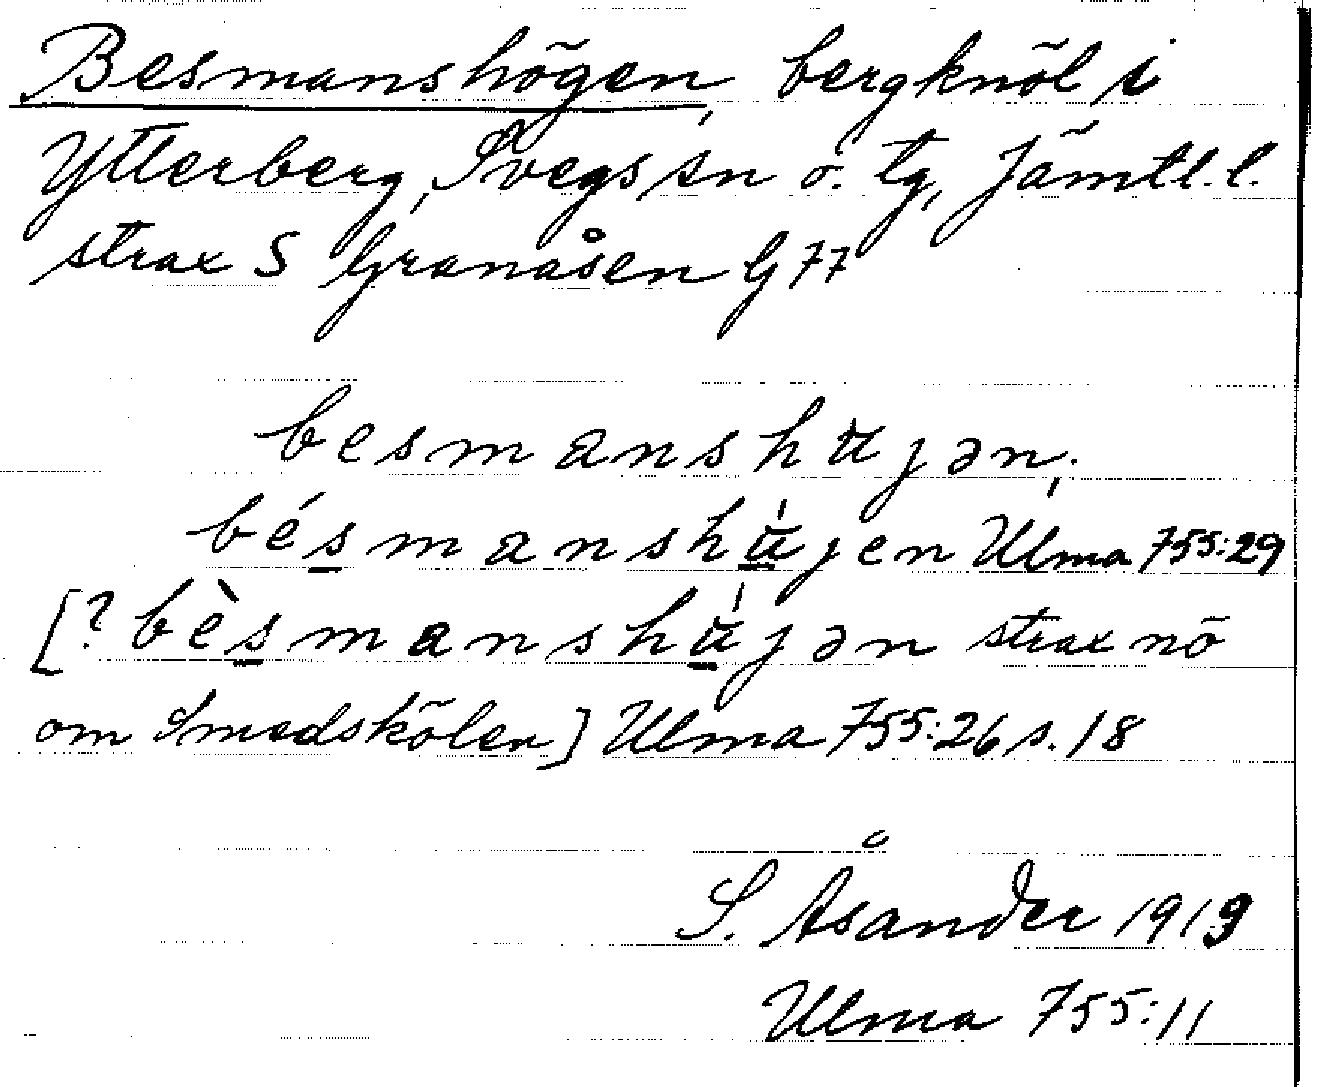 Besmanshögen, bergknöl i
Ytterberg, Svegs sn o. tg, Jämtl. l.
strax S Granåsen G 77
besmanshʉjən;
bésmanshʉ̀jen Ulma 755:29
[? bèsmanshʉ̀jən strax nö
om Smedskölen] Ulma 755:26 s. 18
S. Åsander 1919
Ulma 755:11